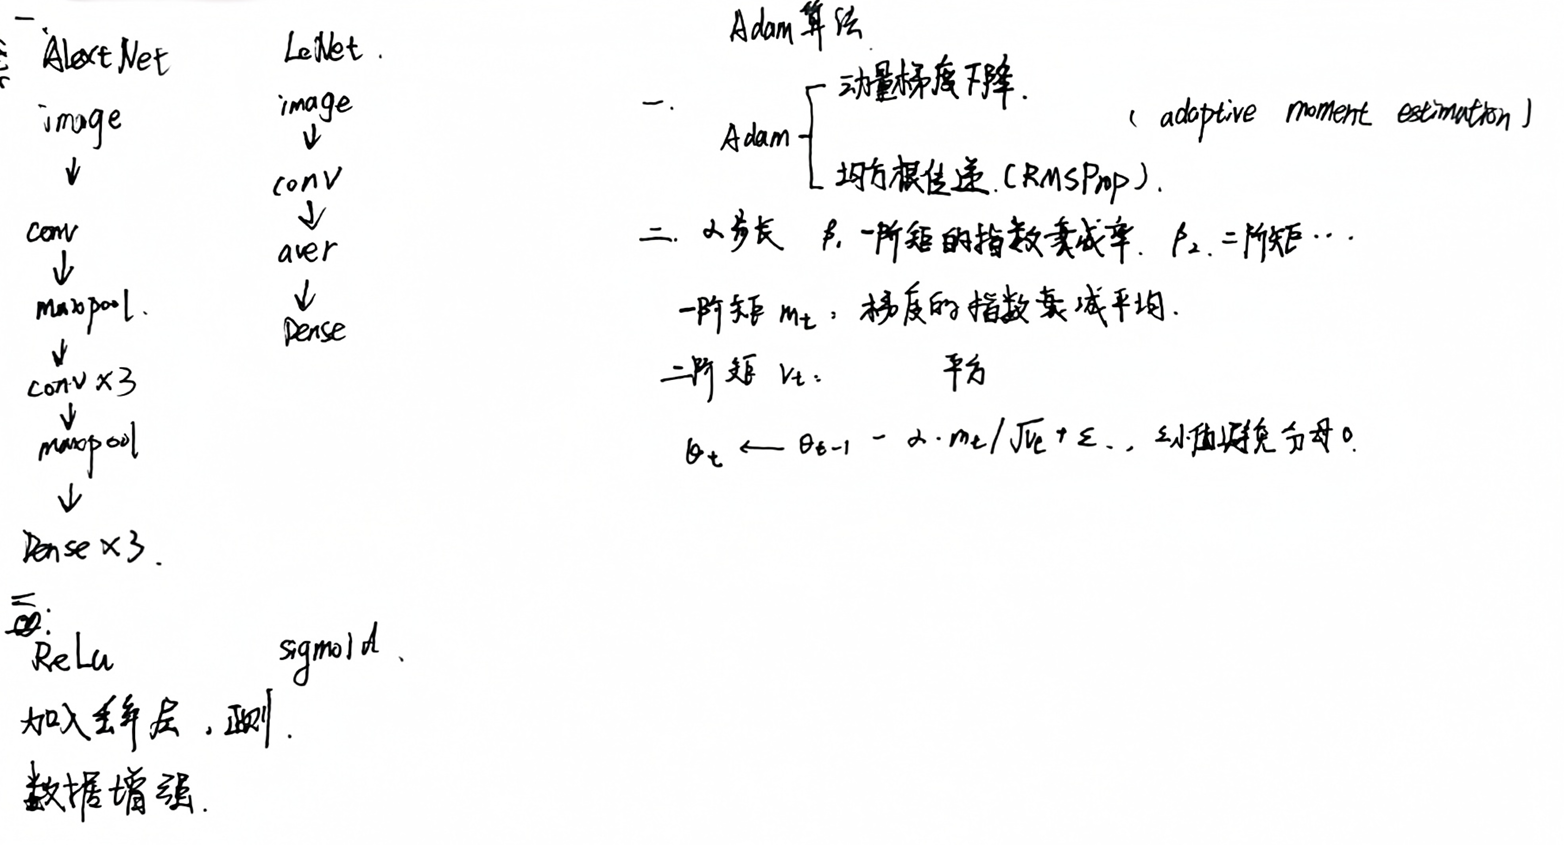 一.
AlextNet
image
↓
conv
↓
maxpool.
↓
conv×3
↓
maxpool
↓
Dense×3.
LeNet.
image
↓
conv
↓
aver
↓
Dense
二:
ReLu sigmoid.
加入丢弃层,正则.
数据增强.
Adam算法
一.
Adam
动量梯度下降.
均方根传递.(RMSProp).
(adaptive moment estimation)
二. α步长 β₁ 一阶矩的指数衰减率. β₂. 二阶矩…
一阶矩 mₜ: 梯度的指数衰减平均.
二阶矩 vₜ: 平方
θₜ ← θₜ₋₁ - α·mₜ/√vₜ+ε.., ε小值避免分母0.